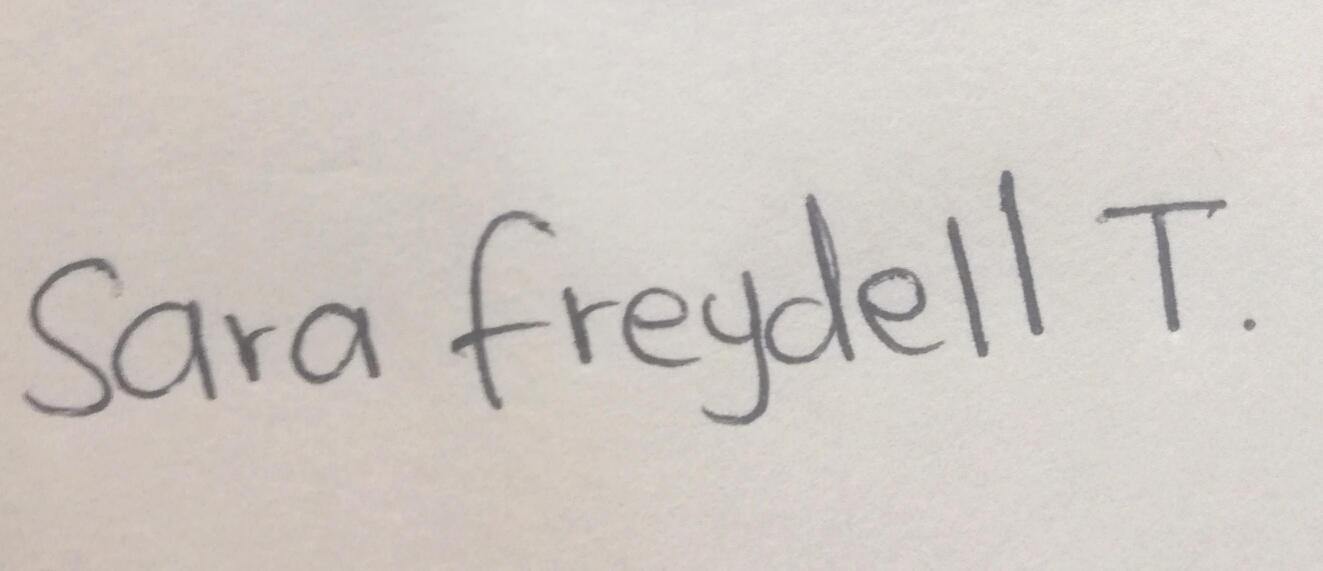 Sara freydell T.